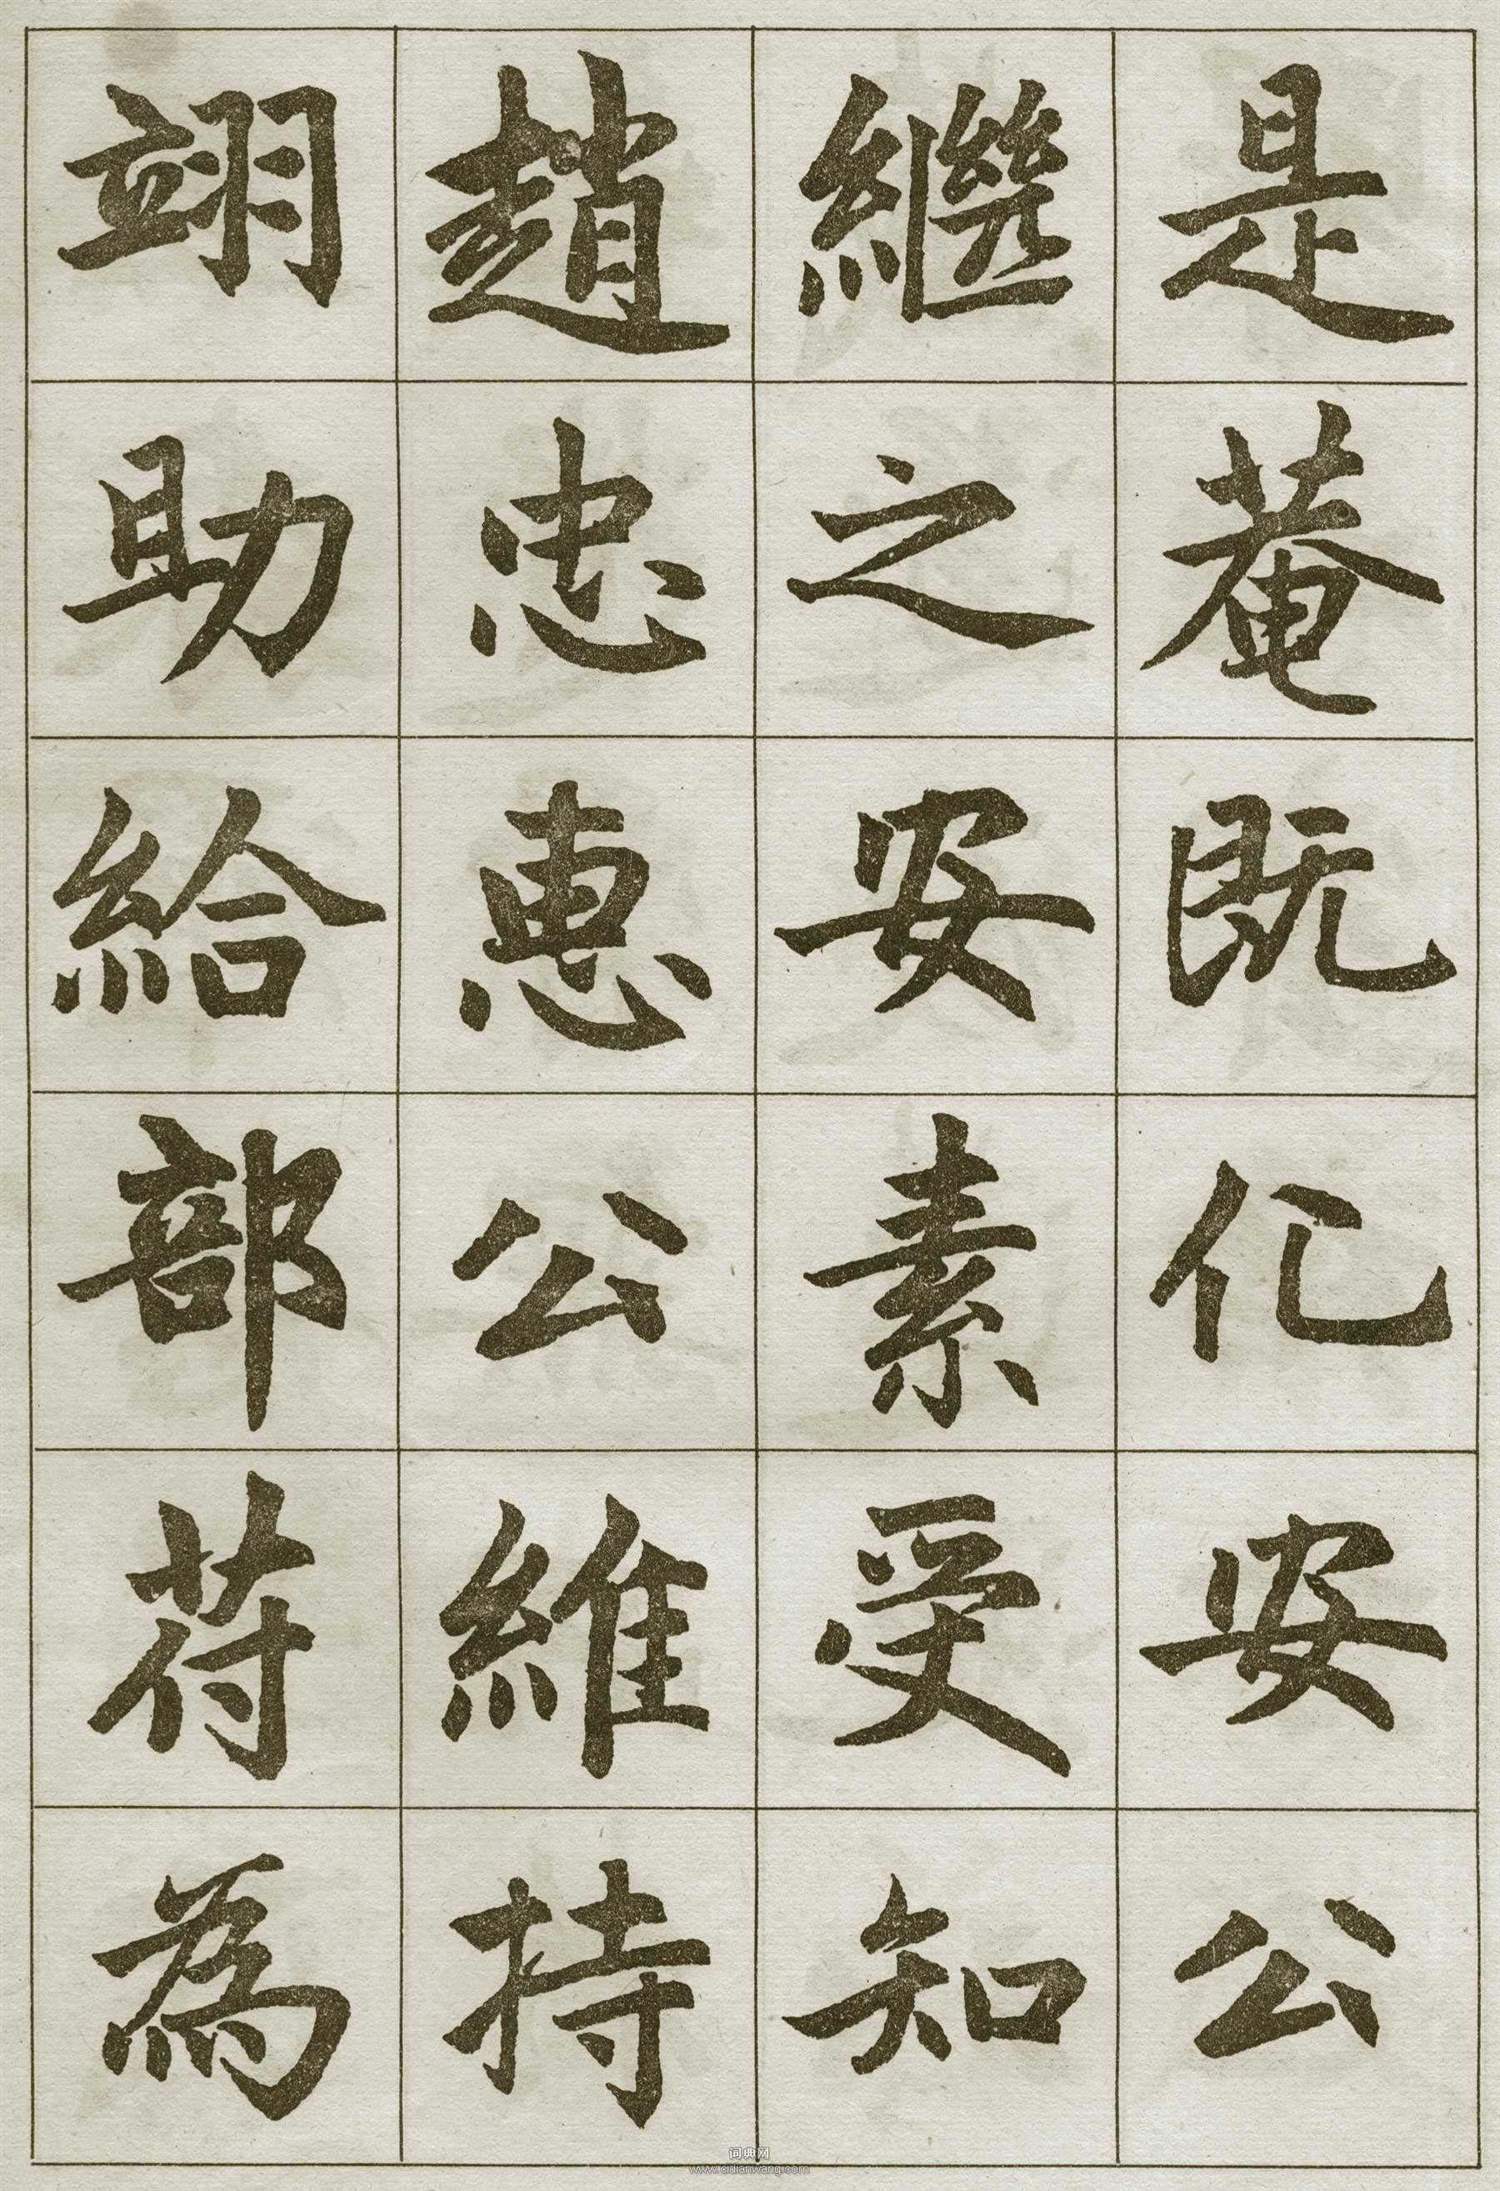 是菴既化安公
繼之安素受知
趙忠惠公維持
翊助給部苻為
词典网
www.cidianwang.com